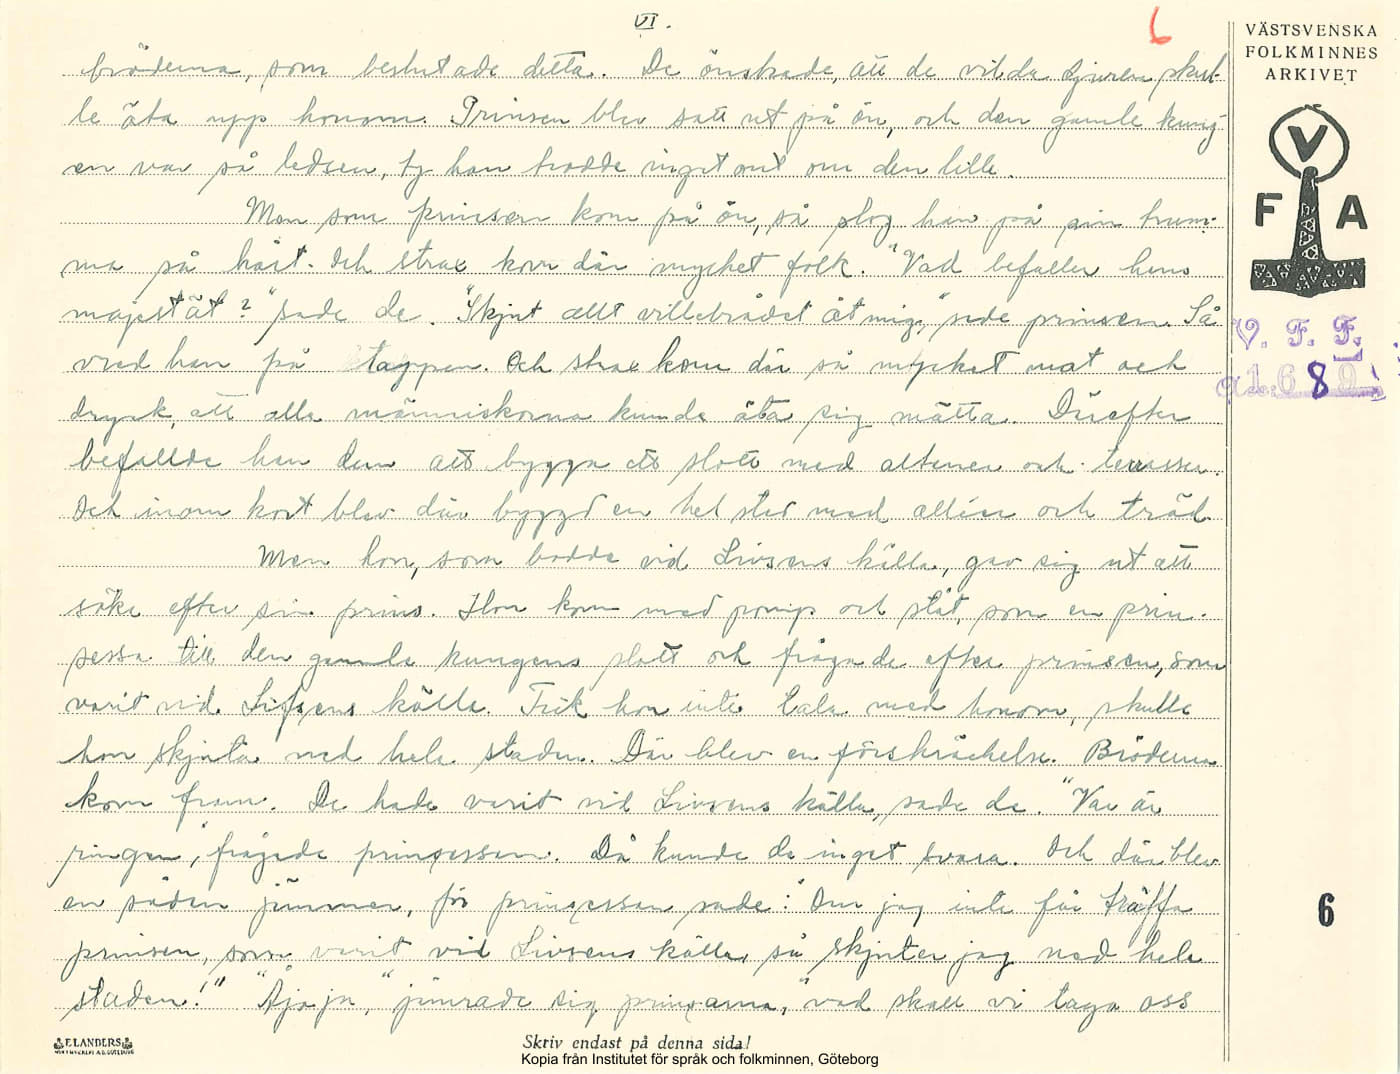 VI.
6
bröderna, som beslutade detta. De önskade, att de vilda djuren skul-
le äta upp honom. Prinsen blev satt ut på ön, och den gamle kung-
en var så ledsen, ty han trodde inget ont om den lille.
Men som prinsen kom på ön, så slog han på sin trum-
ma så hårt. Och strax kom där mycket folk. "Vad befaller hans
majestät?" sade de. "Skjut allt villebrådet åt mig", sade prinsen. Så
vred han på tappen. Och strax kom där så mycket mat och
dryck, att alla människorna kunde äta sig mätta. Därefter
befallde han dem att bygga ett slott med altaner och terrasser.
Och inom kort blev där byggd en hel stad med alléer och träd.
Men hon, som bodde vid Livsens källa, gav sig ut att
söka efter sin prins. Hon kom med pomp och ståt, som en prin-
sessa till den gamle kungens slott och frågade efter prinsen, som
varit vid Lifsens källa. Fick hon inte tala med honom, skulle
hon skjuta ned hela staden. Där blev en förskräckelse. Bröderna
kom fram. De hade varit vid Livsens källa, sade de. "Var är
ringen", frågade prinsessan. Då kunde de inget svara. Och där blev
en sådan jämmer, för prinsessan sade: "Om jag inte får träffa
prinsen, som varit vid Livsens källa, så skjuter jag ned hela
staden!" "Aja ja," jämrade sig prinsarna, "vad skall vi taga oss
VÄSTSVENSKA
FOLKMINNES
ARKIVET
V
F A
V. F. F.
168
6
ELANDERS
Skriv endast på denna sida!
Kopia från Institutet för språk och folkminnen, Göteborg